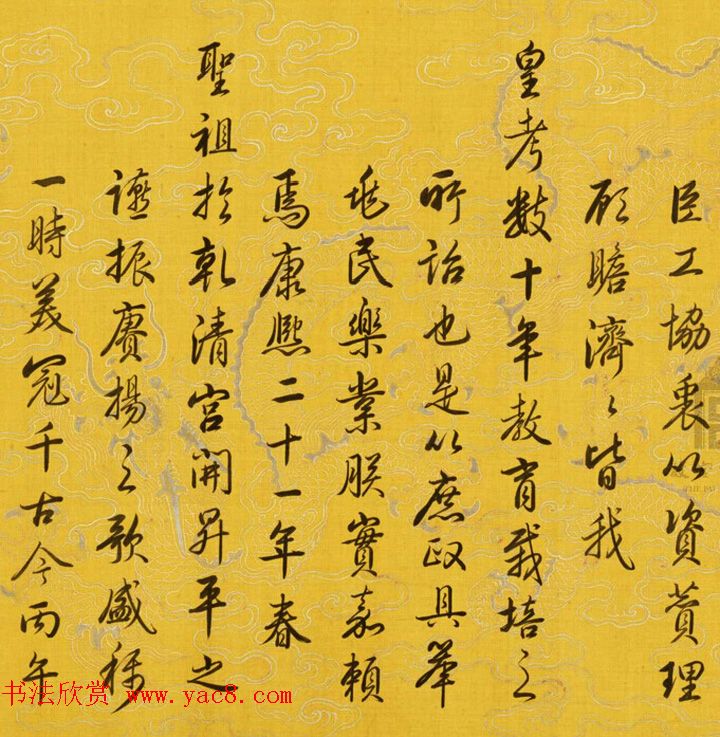 臣工協衷以資贊理
顧瞻濟々皆我
皇考數十年教育栽培之
所詒也是以庶政具舉
兆民樂業朕實嘉賴
焉康熙二十一年春
聖祖於乾清宮開昇平之
讌振賡揚之歌盛稱
一時美冠千古今丙午
书法欣赏 www.yac8.com